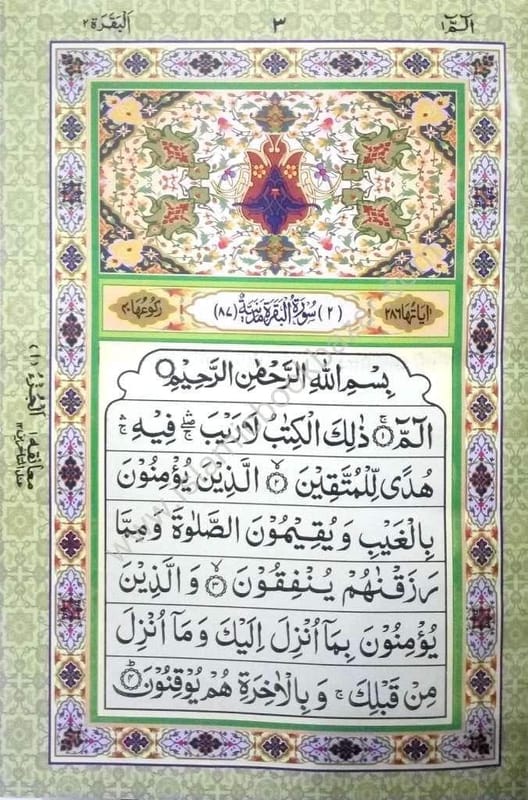 الٓمّٓ ١
٣
اَلْبَقَرَة ٢
اٰیَاتُهَا ٢٨٦
(٢) سُوْرَةُ الْبَقَرَةِ مَدَنِیَّةٌ (٨٧)
رُكُوْعُهَا ٤٠
بِسْمِ اللهِ الرَّحْمٰنِ الرَّحِيْمِ
الٓمّٓ ۚ ١ ذٰلِكَ الْكِتٰبُ لَا رَيْبَ ۛ ۖ فِيْهِ ۛ ۚ
هُدًى لِّلْمُتَّقِيْنَ ۙ ٢ الَّذِيْنَ يُؤْمِنُوْنَ
بِالْغَيْبِ وَيُقِيْمُوْنَ الصَّلٰوةَ وَمِمَّا
رَزَقْنٰهُمْ يُنْفِقُوْنَ ۙ ٣ وَالَّذِيْنَ
يُؤْمِنُوْنَ بِمَآ اُنْزِلَ اِلَيْكَ وَمَآ اُنْزِلَ
مِنْ قَبْلِكَ ۚ وَبِالْاٰخِرَةِ هُمْ يُوْقِنُوْنَ ؕ ٤
اَلْجُزْءُ (١)
معانقه ١